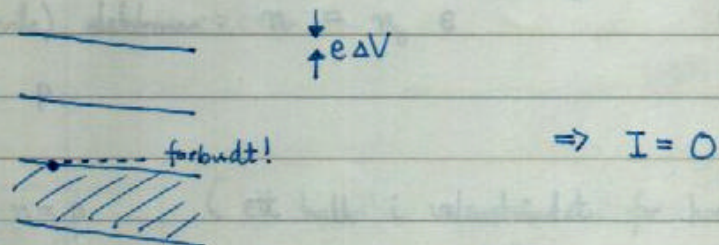 e ΔV
forbudt!
⇒ I = 0